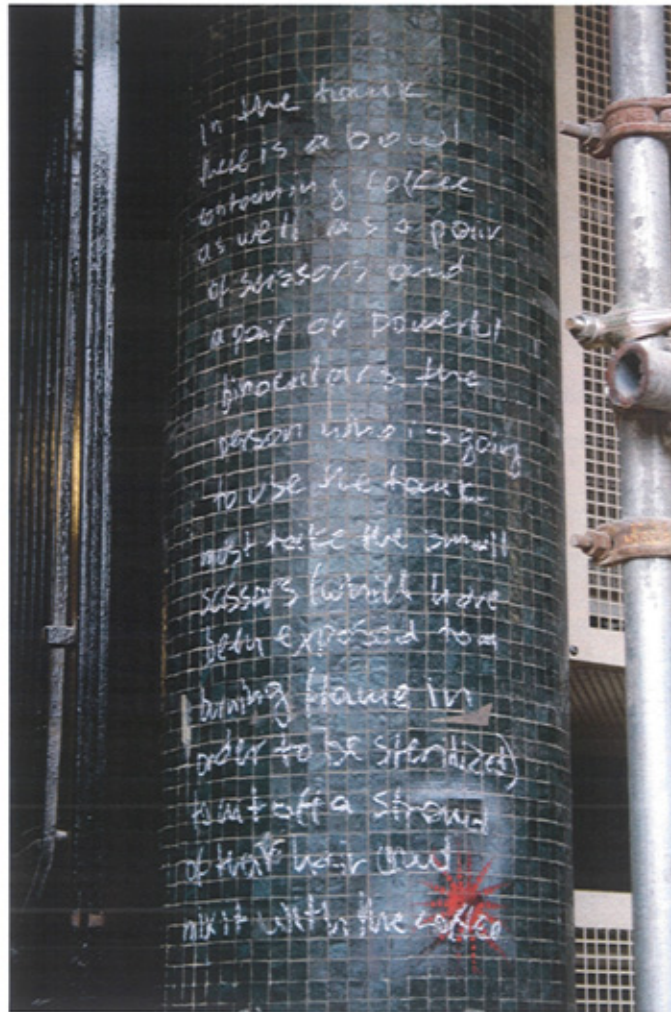 in the tank
there is a bowl
containing coffee
as well as a pair
of scissors and
a pair of powerful
binoculars. the
person who is going
to use the tank
must take the small
scissors (which have
been exposed to a
burning flame in
order to be sterilized)
to cut off a strand
of their hair and
mix it with the coffee